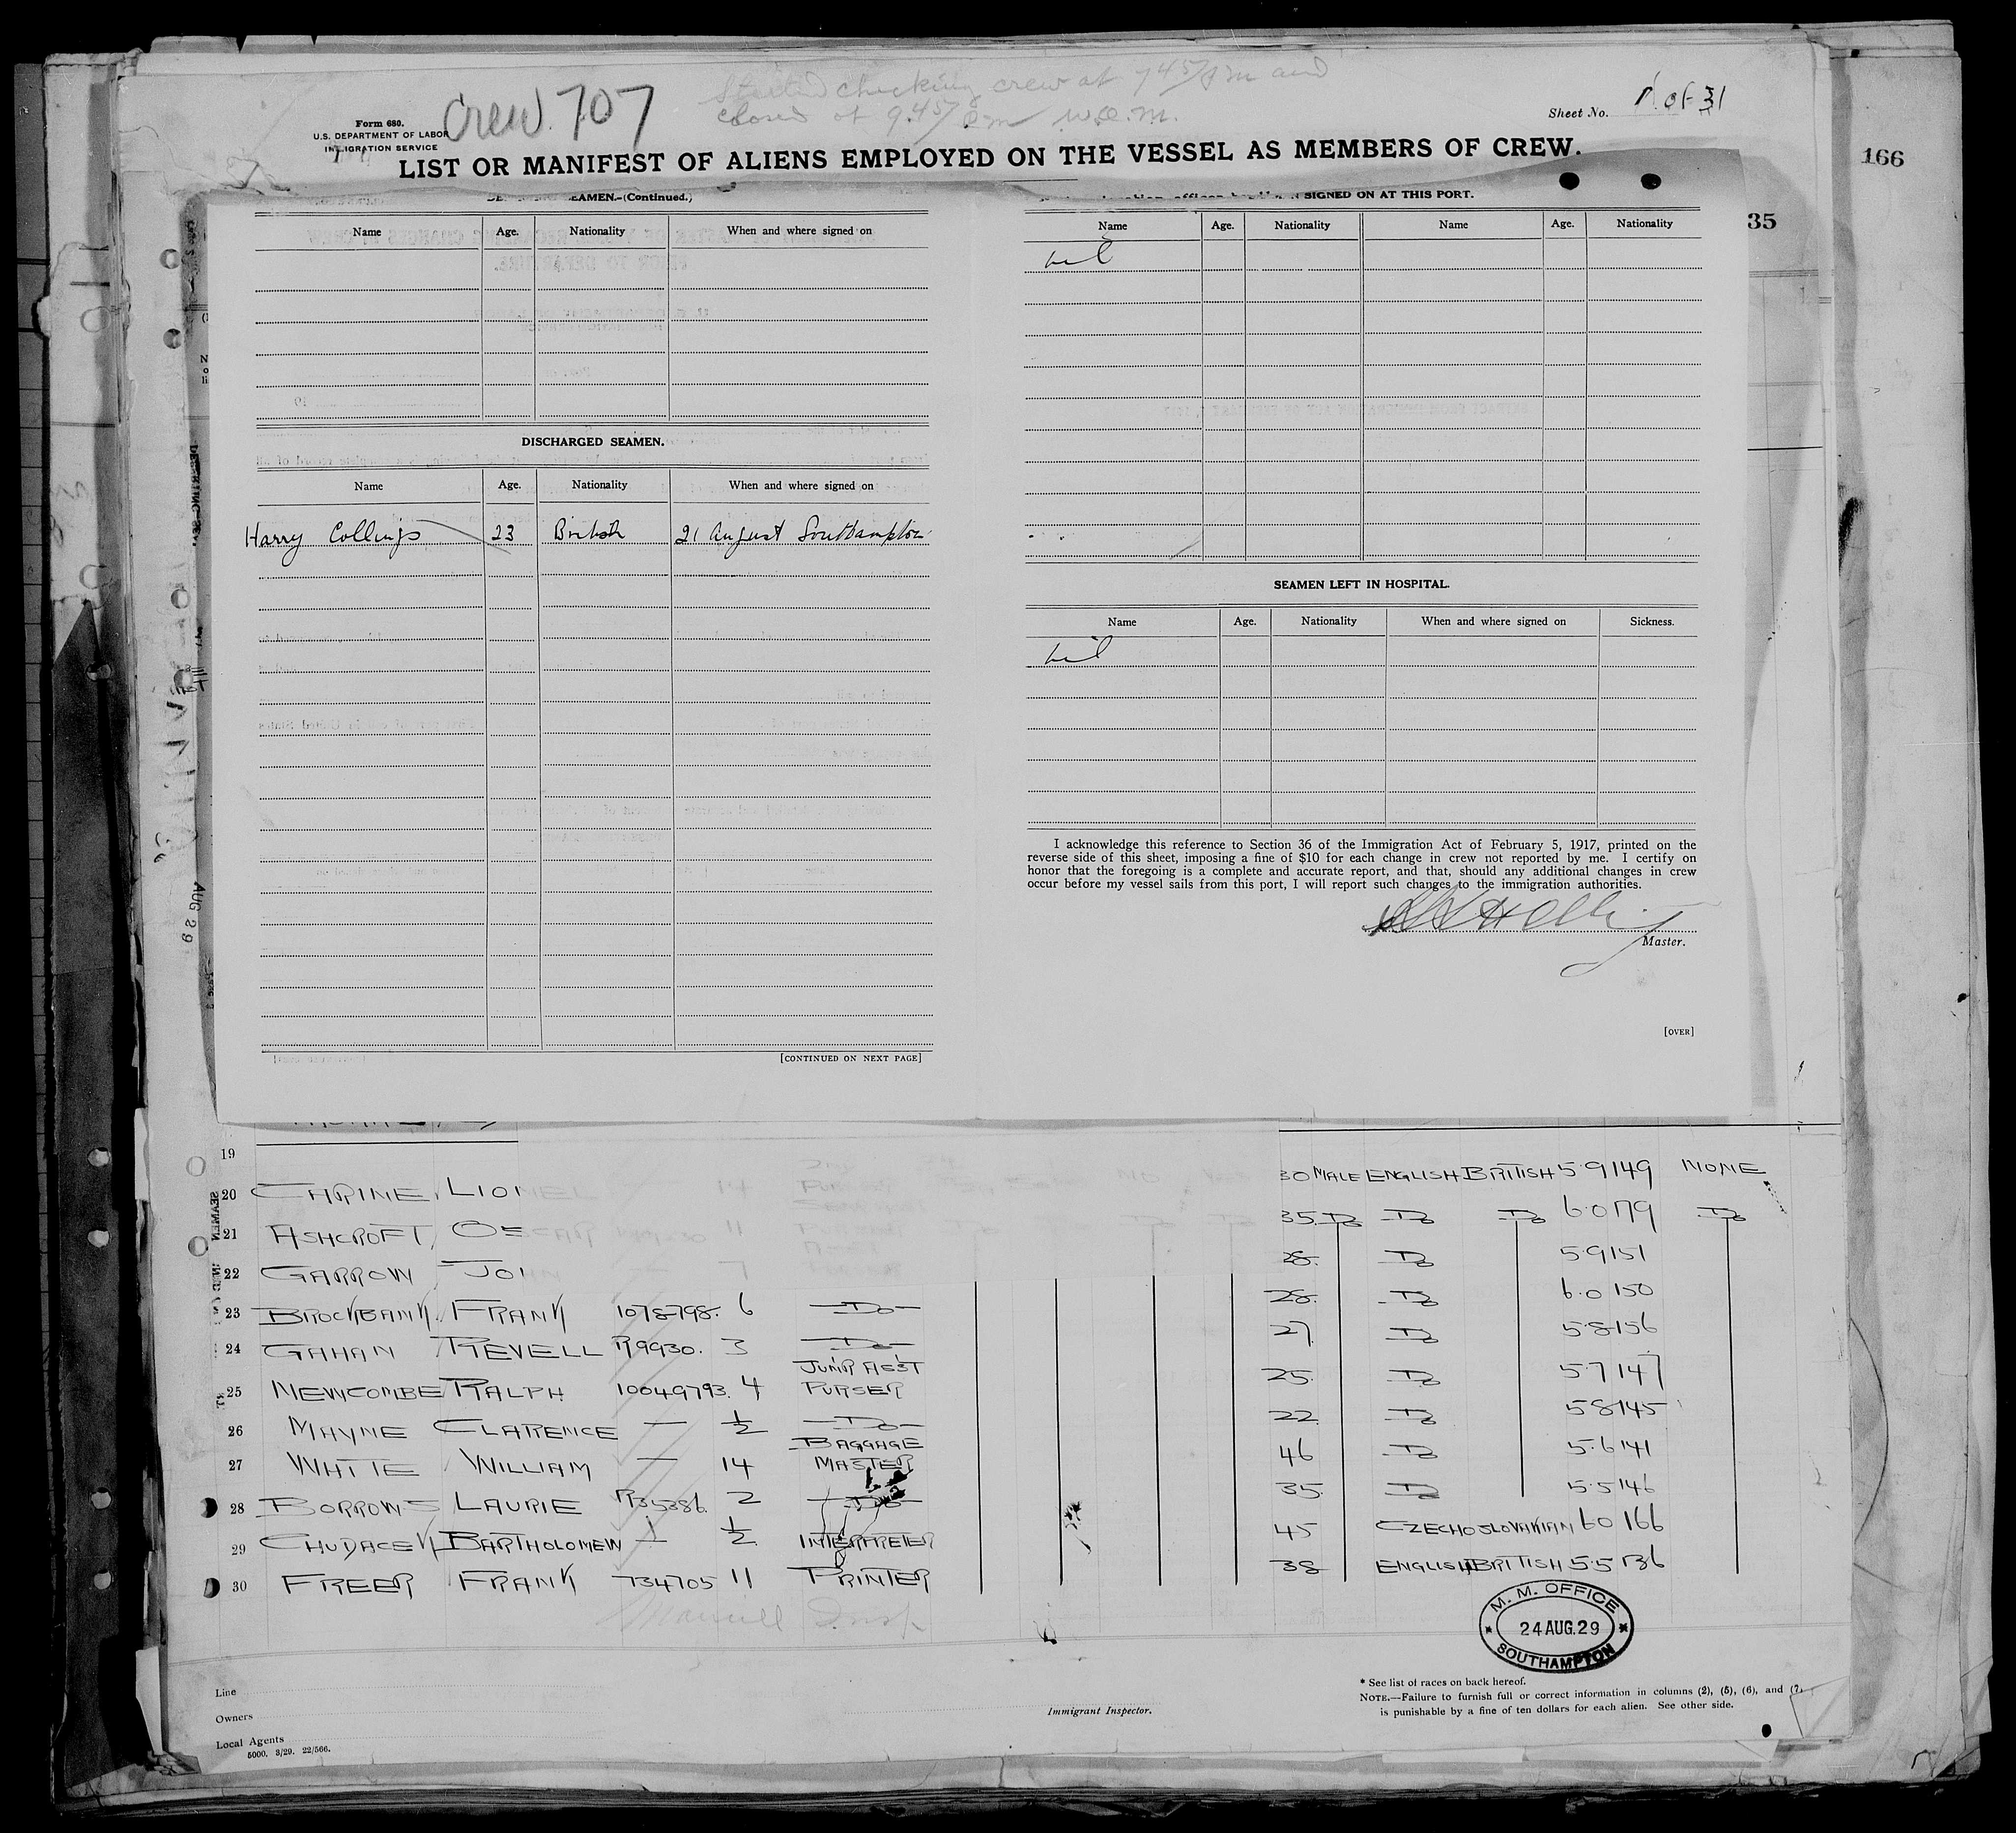 Crew 707
Started checking crew at 7 45/PM and
closed at 9.45/PM W.E.M.
Sheet No. 1 of 31
Form 680.
U.S. DEPARTMENT OF LABOR
IMMIGRATION SERVICE
LIST OR MANIFEST OF ALIENS EMPLOYED ON THE VESSEL AS MEMBERS OF CREW.
166
35
SEAMEN.—(Continued.)
Name Age. Nationality When and where signed on
DISCHARGED SEAMEN.
Name Age. Nationality When and where signed on
Harry Collings 23 British 21 August Southampton
[CONTINUED ON NEXT PAGE]
SIGNED ON AT THIS PORT.
Name Age. Nationality Name Age. Nationality
nil
SEAMEN LEFT IN HOSPITAL.
Name Age. Nationality When and where signed on Sickness.
nil
I acknowledge this reference to Section 36 of the Immigration Act of February 5, 1917, printed on the
reverse side of this sheet, imposing a fine of $10 for each change in crew not reported by me. I certify on
honor that the foregoing is a complete and accurate report, and that, should any additional changes in crew
occur before my vessel sails from this port, I will report such changes to the immigration authorities.
Master.
[OVER]
AUG 29
19
20 CARINE LIONEL 14 30 MALE ENGLISH BRITISH 5·9 149 NONE
21 ASHCROFT OSCAR 11 35 Do Do Do 6·0 179 Do
22 GARROW JOHN 7 28 Do 5·9 151
23 BROCKBANK FRANK 1078798. 6 Do 28 Do 6·0 150
24 GAHAN REVELL R9930. 3 Do 27 Do 5·8 156
25 NEWCOMBE RALPH 10049793. 4 JUNR ASST PURSER 25 Do 5·7 147
26 MAYNE CLARENCE — ½ Do 22 Do 5·8 145
27 WHITE WILLIAM — 14 BAGGAGE MASTER 46 Do 5·6 141
28 BORROWS LAURIE R35386 2 Do 35 Do 5·5 146
29 CHUDACEK BARTHOLOMEW ½ INTERPRETER 45 CZECHOSLOVAKIAN 6·0 166
30 FREER FRANK 734705 11 PRINTER 38 ENGLISH BRITISH 5·5 136
M. M. OFFICE
24 AUG. 29
SOUTHAMPTON
Line
Owners
Local Agents
5000. 3/29. 22/566.
Immigrant Inspector.
* See list of races on back hereof.
NOTE.—Failure to furnish full or correct information in columns (2), (5), (6), and (7)
is punishable by a fine of ten dollars for each alien. See other side.